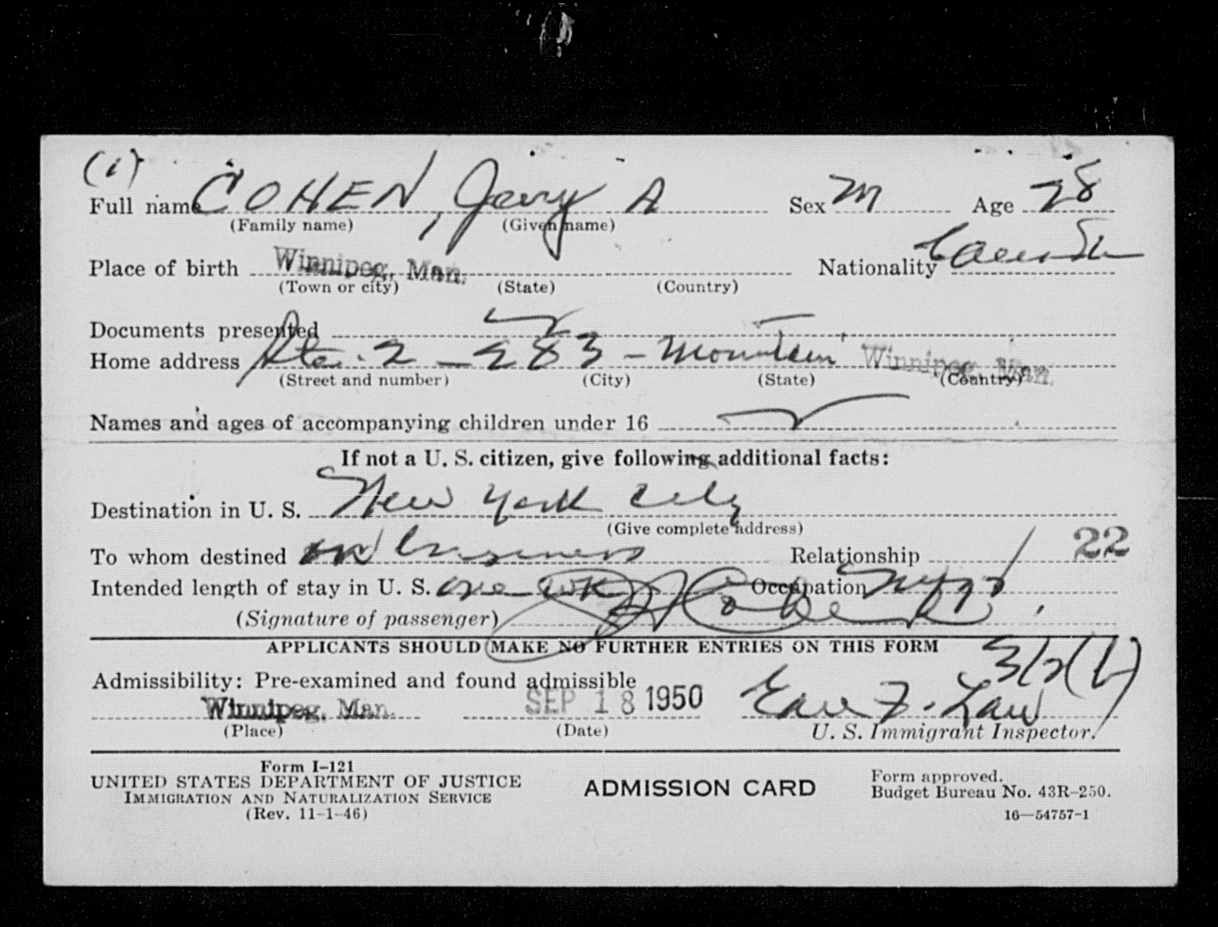 (1)
Full name COHEN, Jerry A Sex M Age 28
(Family name) (Given name)
Place of birth Winnipeg, Man. Nationality
(Town or city) (State) (Country)
Documents presented
Home address Ste. 2 - 283 - Mountain, Winnipeg, Man.
(Street and number) (City) (State) (Country)
Names and ages of accompanying children under 16
If not a U. S. citizen, give following additional facts:
Destination in U. S. New York City
(Give complete address)
To whom destined on business Relationship 22
Intended length of stay in U. S. one wk Occupation Mgr
(Signature of passenger) Cohen
APPLICANTS SHOULD MAKE NO FURTHER ENTRIES ON THIS FORM
Admissibility: Pre-examined and found admissible 3/2(b)
Winnipeg, Man. SEP 18 1950 Earl F. Law
(Place) (Date) U. S. Immigrant Inspector.
Form I-121
UNITED STATES DEPARTMENT OF JUSTICE
IMMIGRATION AND NATURALIZATION SERVICE
(Rev. 11-1-46)
ADMISSION CARD
Form approved.
Budget Bureau No. 43R-250.
16—54757-1